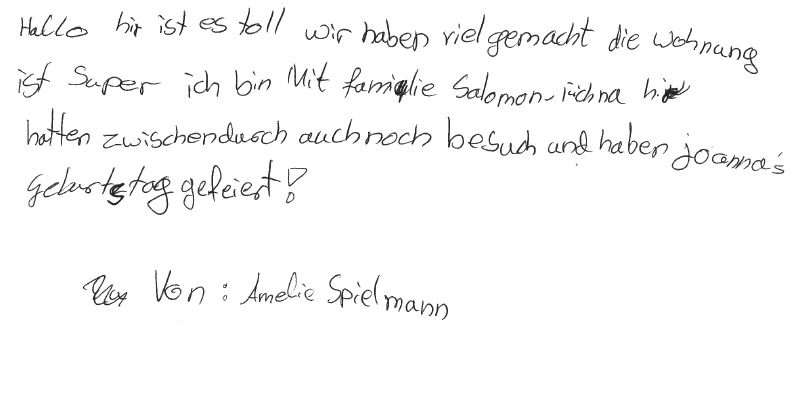 Hallo hir ist es toll wir haben viel gemacht die Wohnung
ist Super ich bin Mit familie Salomon- hir
hatten zwischendurch auch noch besuch und haben joanna's
Geburtstag gefeiert!
Von: Amelie Spielmann